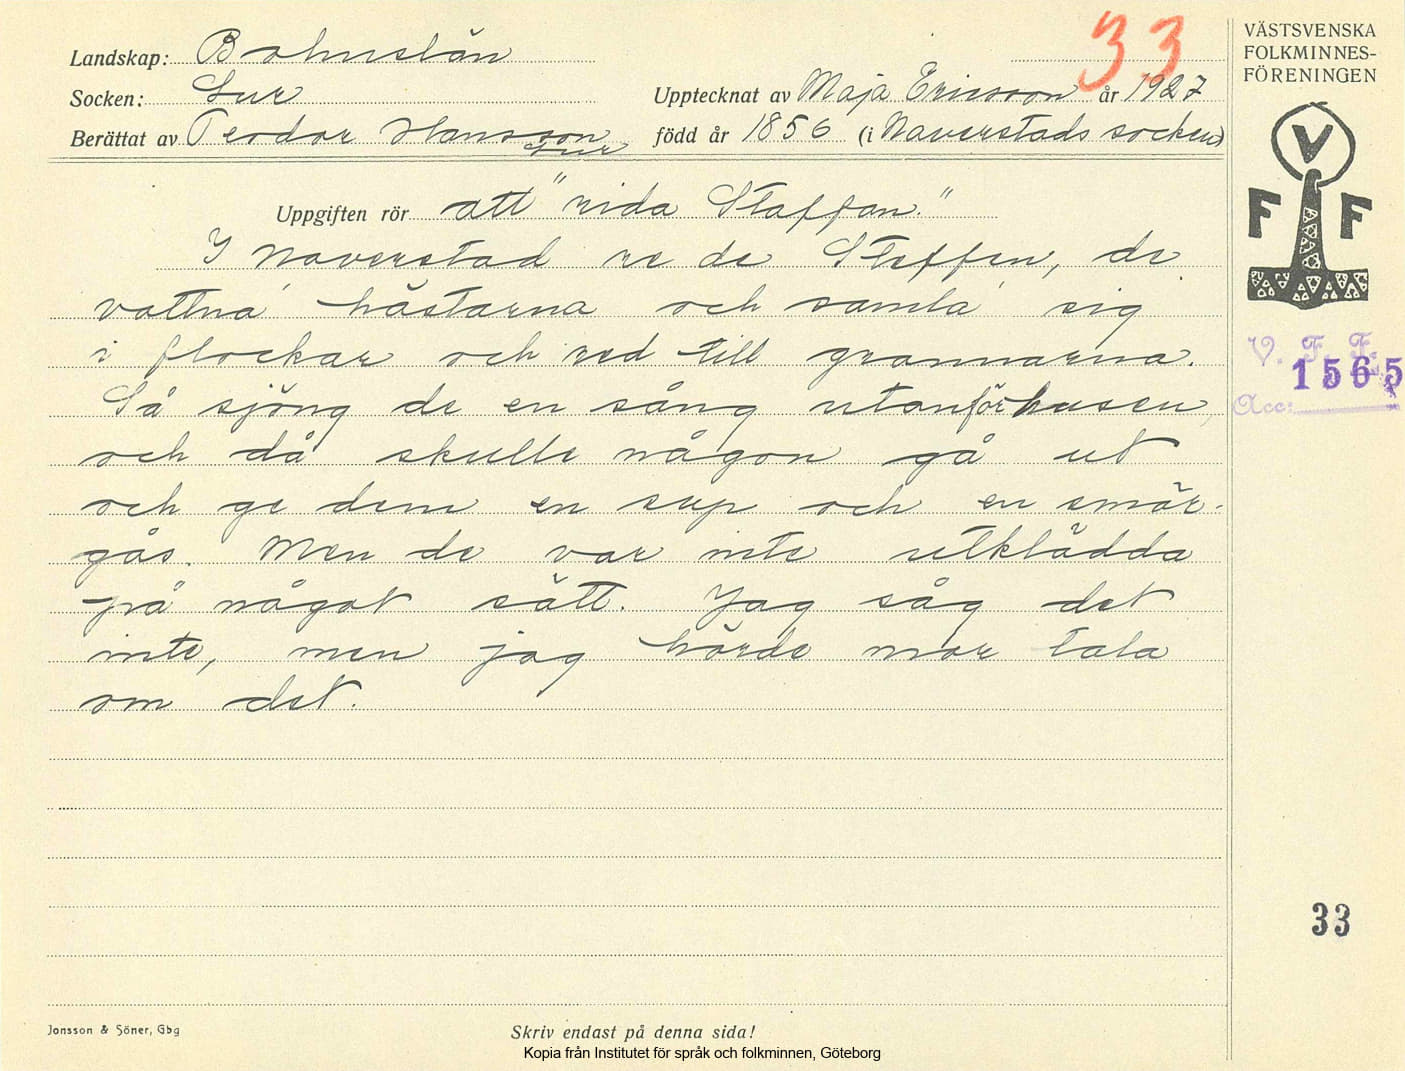 33
Landskap: Bohuslän
Socken: Lur
Upptecknat av Maja Ericsson år 1927
Berättat av Teodor Hansson född år 1856 (i Naverstads socken)
Lur
Uppgiften rör att "rida Staffan."
I Naverstad re de Steffen, de
vattna' hästarna och samla' sig
i flockar och red till grannarna.
Så sjöng de en sång utanför husen,
och då skulle någon gå ut
och ge dem en sup och en smör-
gås. Men de var inte utklädda
på något sätt. Jag såg det
inte, men jag hörde mor tala
om det.
VÄSTSVENSKA
FOLKMINNES-
FÖRENINGEN
V
F F
V. F. F.
1565
Acc:
33
Jonsson & Söner, Gbg
Skriv endast på denna sida!
Kopia från Institutet för språk och folkminnen, Göteborg